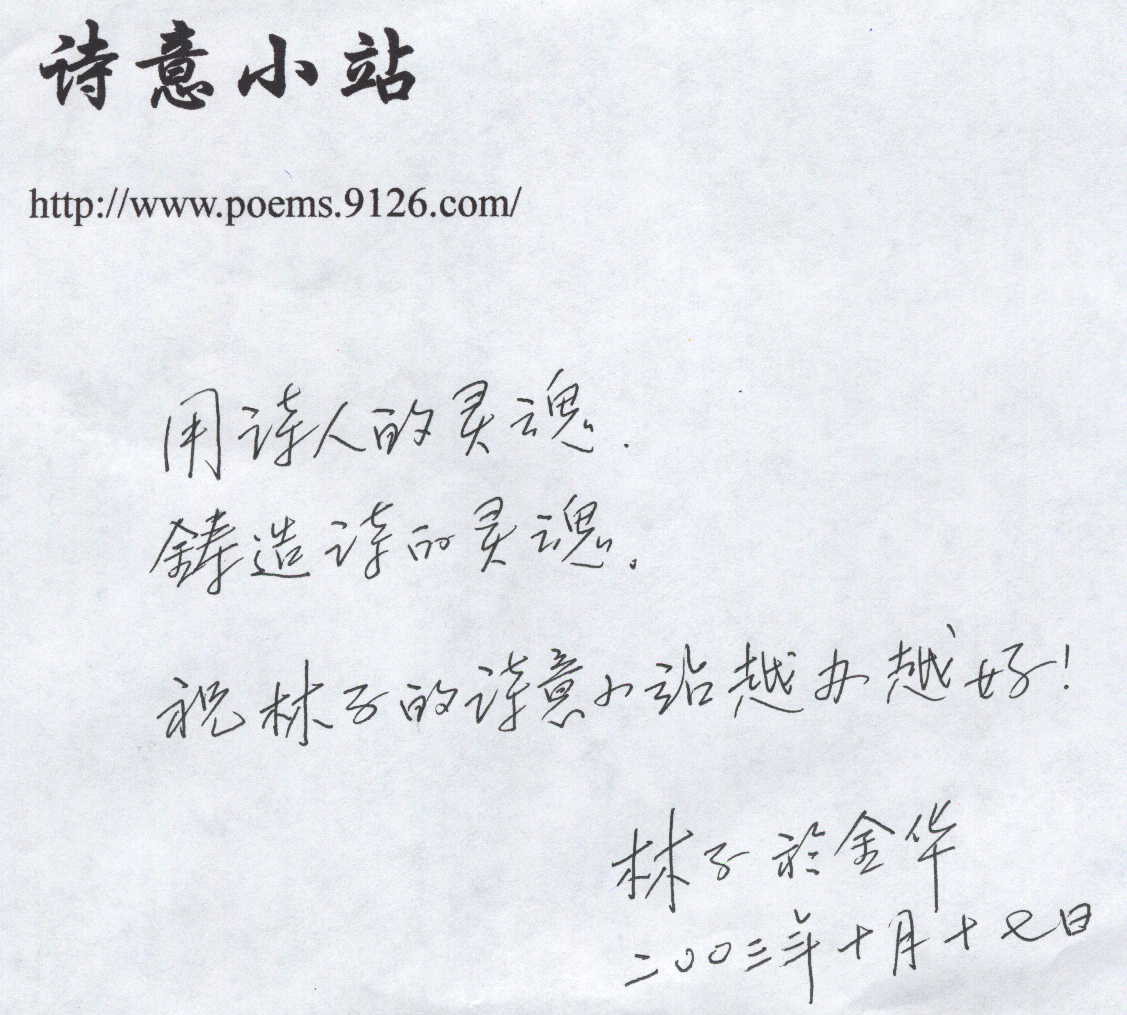 诗意小站
http://www.poems.9126.com/
用诗人的灵魂.
鋳造诗的灵魂.
祝林子的诗意小站越办越好!
林子於金华
二00三年十月十七日